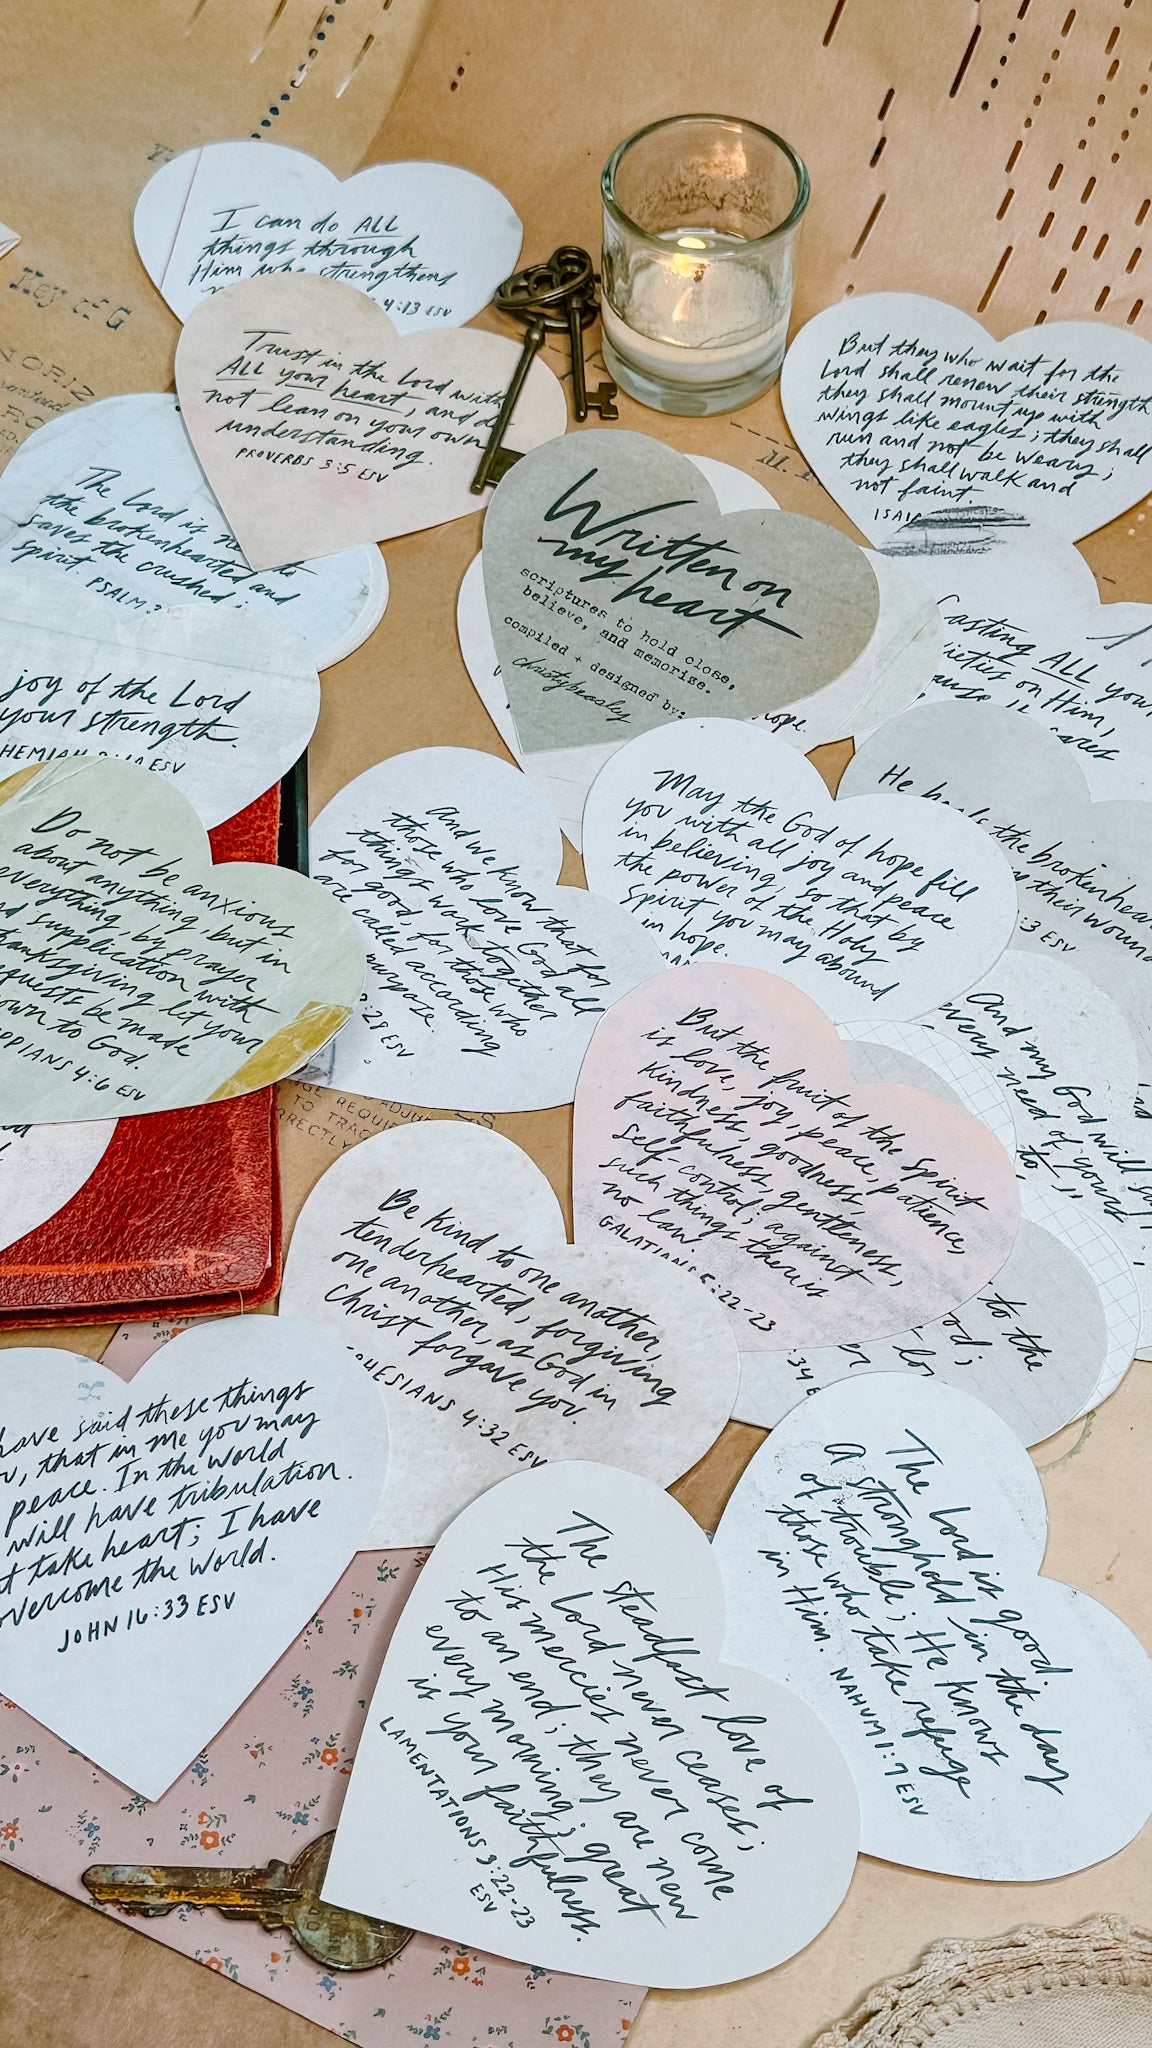 I can do ALL
things through
Him who strengthens
4:13 ESV
Trust in the Lord with
ALL your heart, and do
not lean on your own
understanding.
PROVERBS 3:5 ESV
But they who wait for the
Lord shall renew their strength
they shall mount up with
wings like eagles; they shall
run and not be weary;
they shall walk and
not faint.
Key of G
The Lord is near to
the brokenhearted and
saves the crushed
spirit. PSALM 3
Written on
my heart
scriptures to hold close,
believe, and memorize.
compiled + designed by:
christybeasley
hope.
Casting ALL your
on Him,
cares
joy of the Lord
your strength.
ESV
He heals the brokenhear
their wound
:3 ESV
Do not be anxious
about anything, but in
everything, by prayer
and supplication with
thanksgiving let your
requests be made
known to God.
4:6 ESV
And we know that for
those who love God all
things work together
for good, for those who
are called according
purpose.
:28 ESV
May the God of hope fill
you with all joy and peace
in believing, so that by
the power of the Holy
Spirit you may abound
in hope.
And my God will
every need of yours
to
But the fruit of the Spirit
is love, joy, peace, patience,
kindness, goodness,
faithfulness, gentleness,
self-control; against
such things there is
no law.
GALATIANS 5:22-23
ADJU
REQUI
TO TRAC
RRECTLY
to the
:34
Be kind to one another,
tenderhearted, forgiving
one another, as God in
Christ forgave you.
EPHESIANS 4:32 ESV
have said these things
that in me you may
peace. In the world
will have tribulation.
take heart; I have
overcome the world.
JOHN 16:33 ESV
The Lord is good
A stronghold in the day
of trouble; He knows
those who take refuge
in Him. NAHUM 1:7 ESV
The steadfast love of
the Lord never ceases;
His mercies never come
to an end; they are new
every morning; great
is your faithfulness.
LAMENTATIONS 3:22-23
ESV